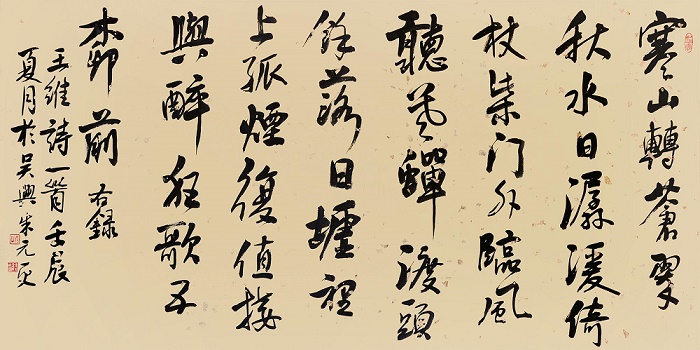 寒山轉蒼翠
秋水日潺湲倚
杖柴門外臨風
聽暮蟬渡頭
餘落日墟裡
上孤煙復值接
與醉狂歌五
柳前 右錄
王維詩一首壬辰
夏月於吳興朱元